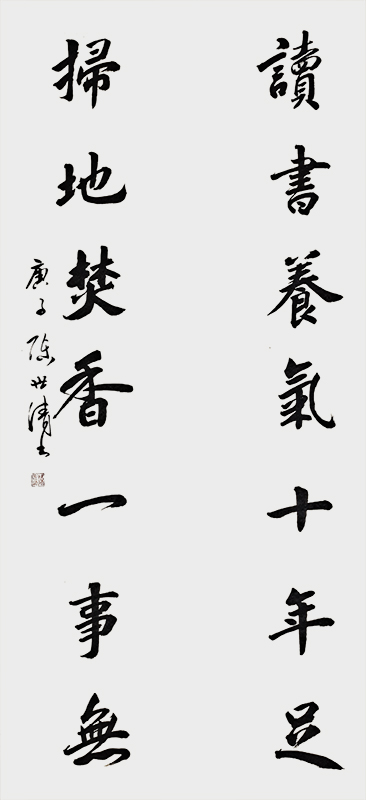 讀書養氣十年足
掃地焚香一事無
庚子陳世清書